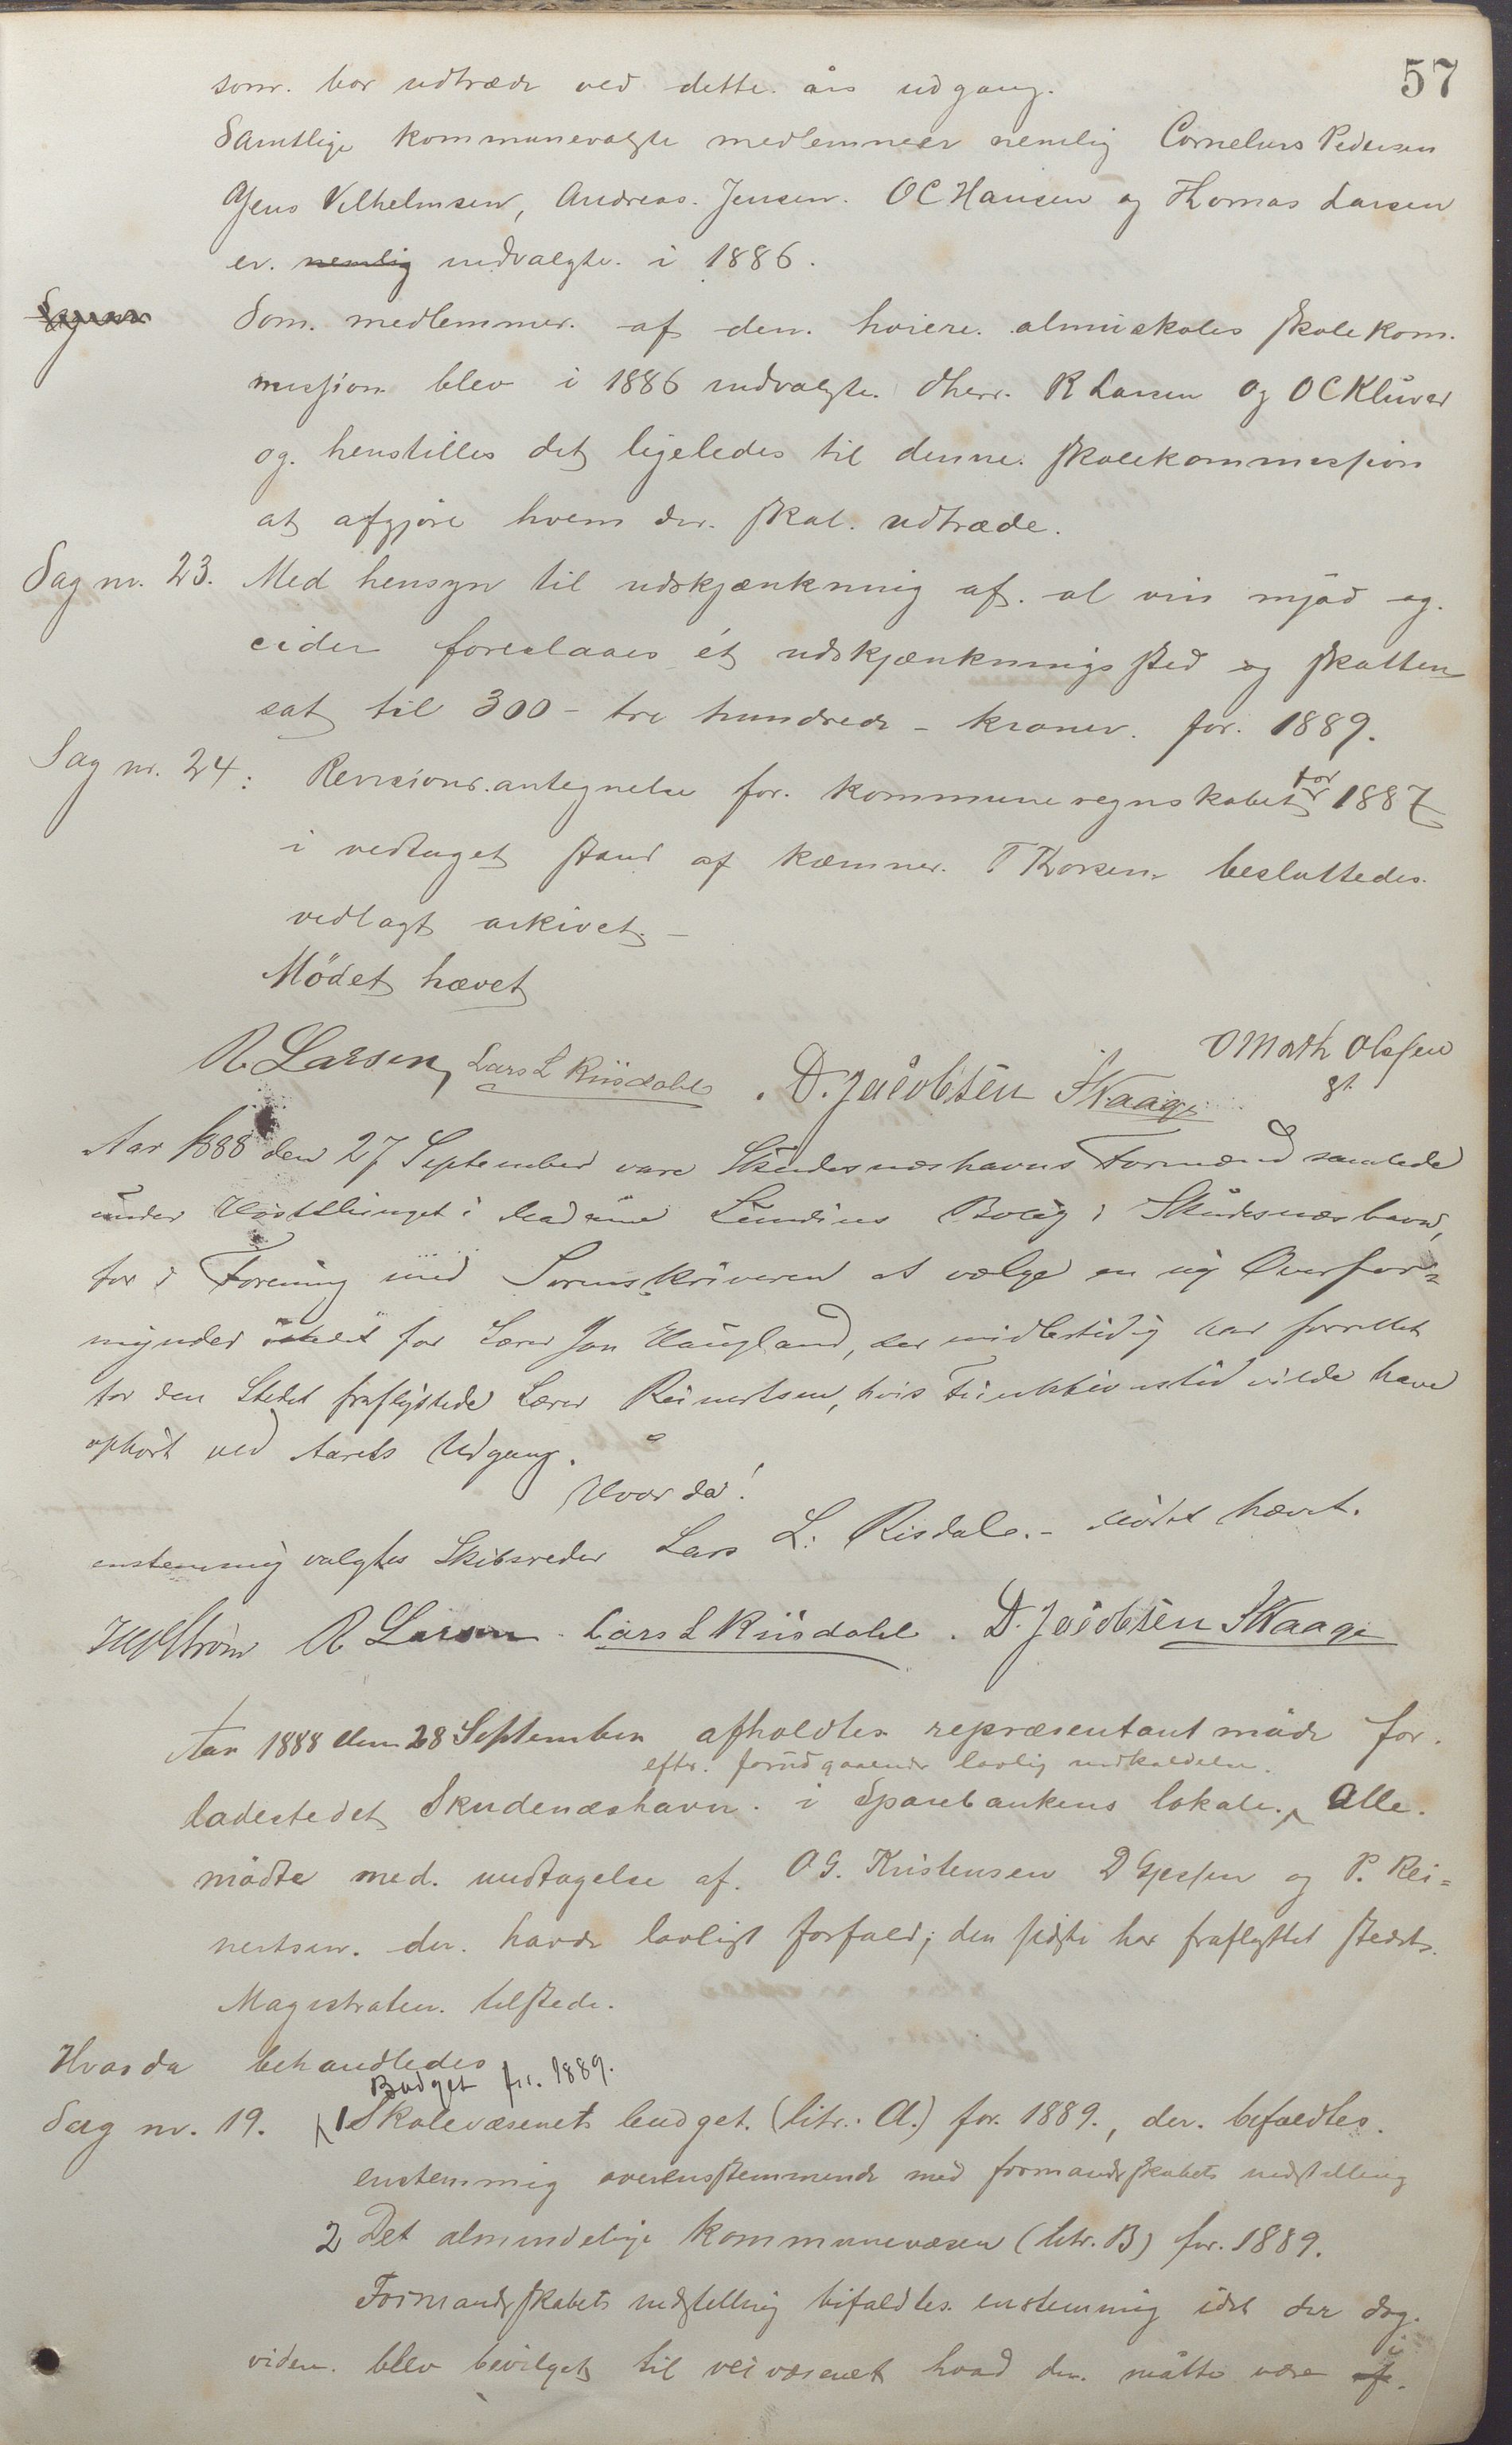 57
som. bør udtræde ved dette års udgang.
Samtlige kommunevalgte medlemmer nemlig Cornelius Pedersen
Jens Vilhelmsen, Andreas Jensen. O C Hansen og Thomas Larsen
er. nemlig udvalgte. i 1886.
Som. medlemmer. af den. høiere. almuskoles skolekom.
mission blev i 1886 udvalgte. dherr. R Larsen og O C Klüver
og. henstilles det ligeledes til denne. skolekommission
at afgjöre hvem der. skal. udtræde.
Sag nr. 23. Med hensyn til udskjænkning af. øl vin mjød og.
cider foreslaaes ét udskjænknings sted og skatten
sat til 300 - tre hundrede - kroner. for. 1889.
Sag nr. 24: Revisions.antegnelse for. kommuneregnskabet for 1887
i vedtaget stand af kæmner. T Thorsen besluttedes.
vedlagt arkivet. -
Mödet hævet
R Larsen, Lars L Riisdahl. D. Jacobsen S Waage O Math Olssen
gt.
Aar 1888 den 27 September vare Skudesneshavns Formænd samlede
under Høstthinget i Madame Lundins Bolig i Skudesneshavn,
for i Forening med Sorenskriveren at vælge en ny Overfor=
mynder for Lærer Jon Haugland, der midlertidig har forrettet
for den Stedet fraflyttede Lærer Reinertsen, hvis Funktionstid vilde have
ophørt ved Aarets Udgang.
Hvorda!
enstemmig valgtes Skibsreder Lars L. Risdal. - Mødet hævet.
R Larsen. Lars L Riisdahl. D. Jacobsen S Waage
Aar 1888 den 28 September afholdtes repræsentantmøde for.
efter. forudgaaende lovlig indkaldelse.
ladestedet Skudenæshavn. i Sparebankens lokale. Alle.
mødte med. undtagelse af. O G. Kristensen D Gjessen og P. Rei=
nertsen. der. havde lovligt forfald; den sidste har fraflyttet stedet.
Magistraten. tilstede.
Hvorda behandledes
Budget for. 1889.
Sag nr. 19. 1 Skolevæsenets budget. (litr.: A.) for. 1889., der. bifaldtes.
enstemmig overensstemmende med formandsskabets indstilling
2 Det almindelige kommunevæsen (litr. B) for. 1889.
Formandsskabets indstilling bifaldtes. enstemmig idet der dog.
videre. blev bevilget til veivæsenet hvad der. måtte være i af.